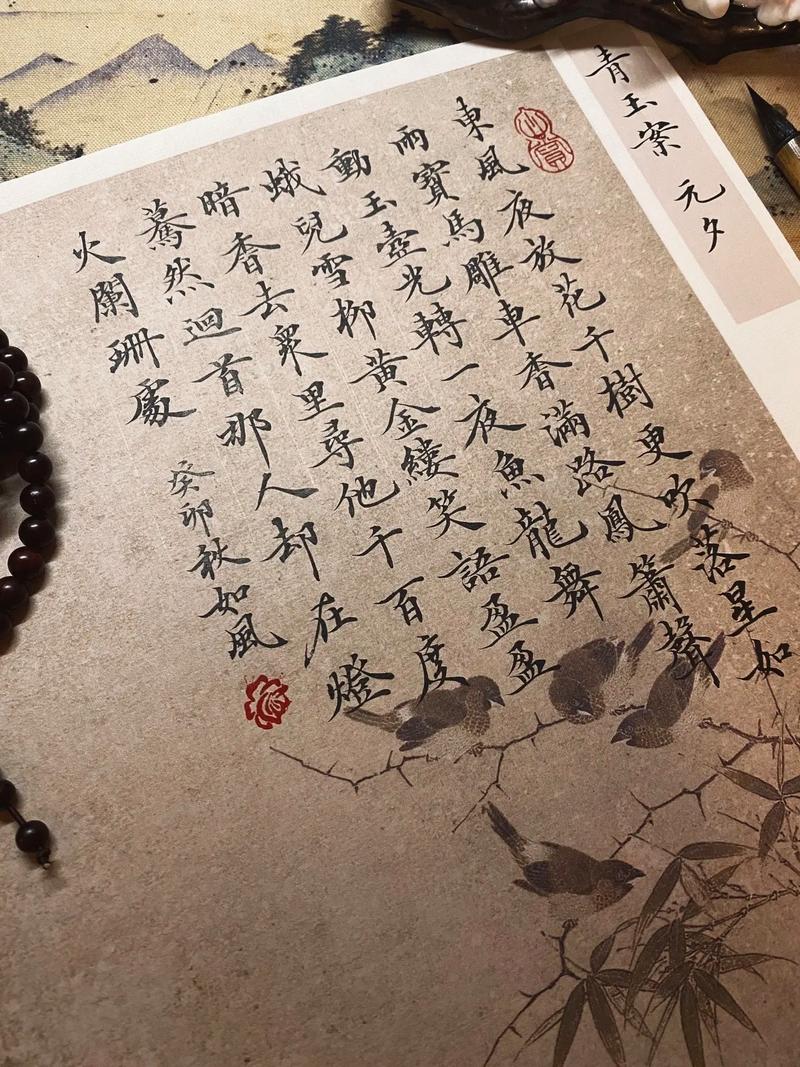 青玉案 元夕
東風夜放花千樹更吹落星如
雨寶馬雕車香滿路鳳簫聲
動玉壺光轉一夜魚龍舞
蛾兒雪柳黃金縷笑語盈盈
暗香去衆里尋他千百度
驀然迴首那人却在燈
火闌珊處
癸卯秋如風